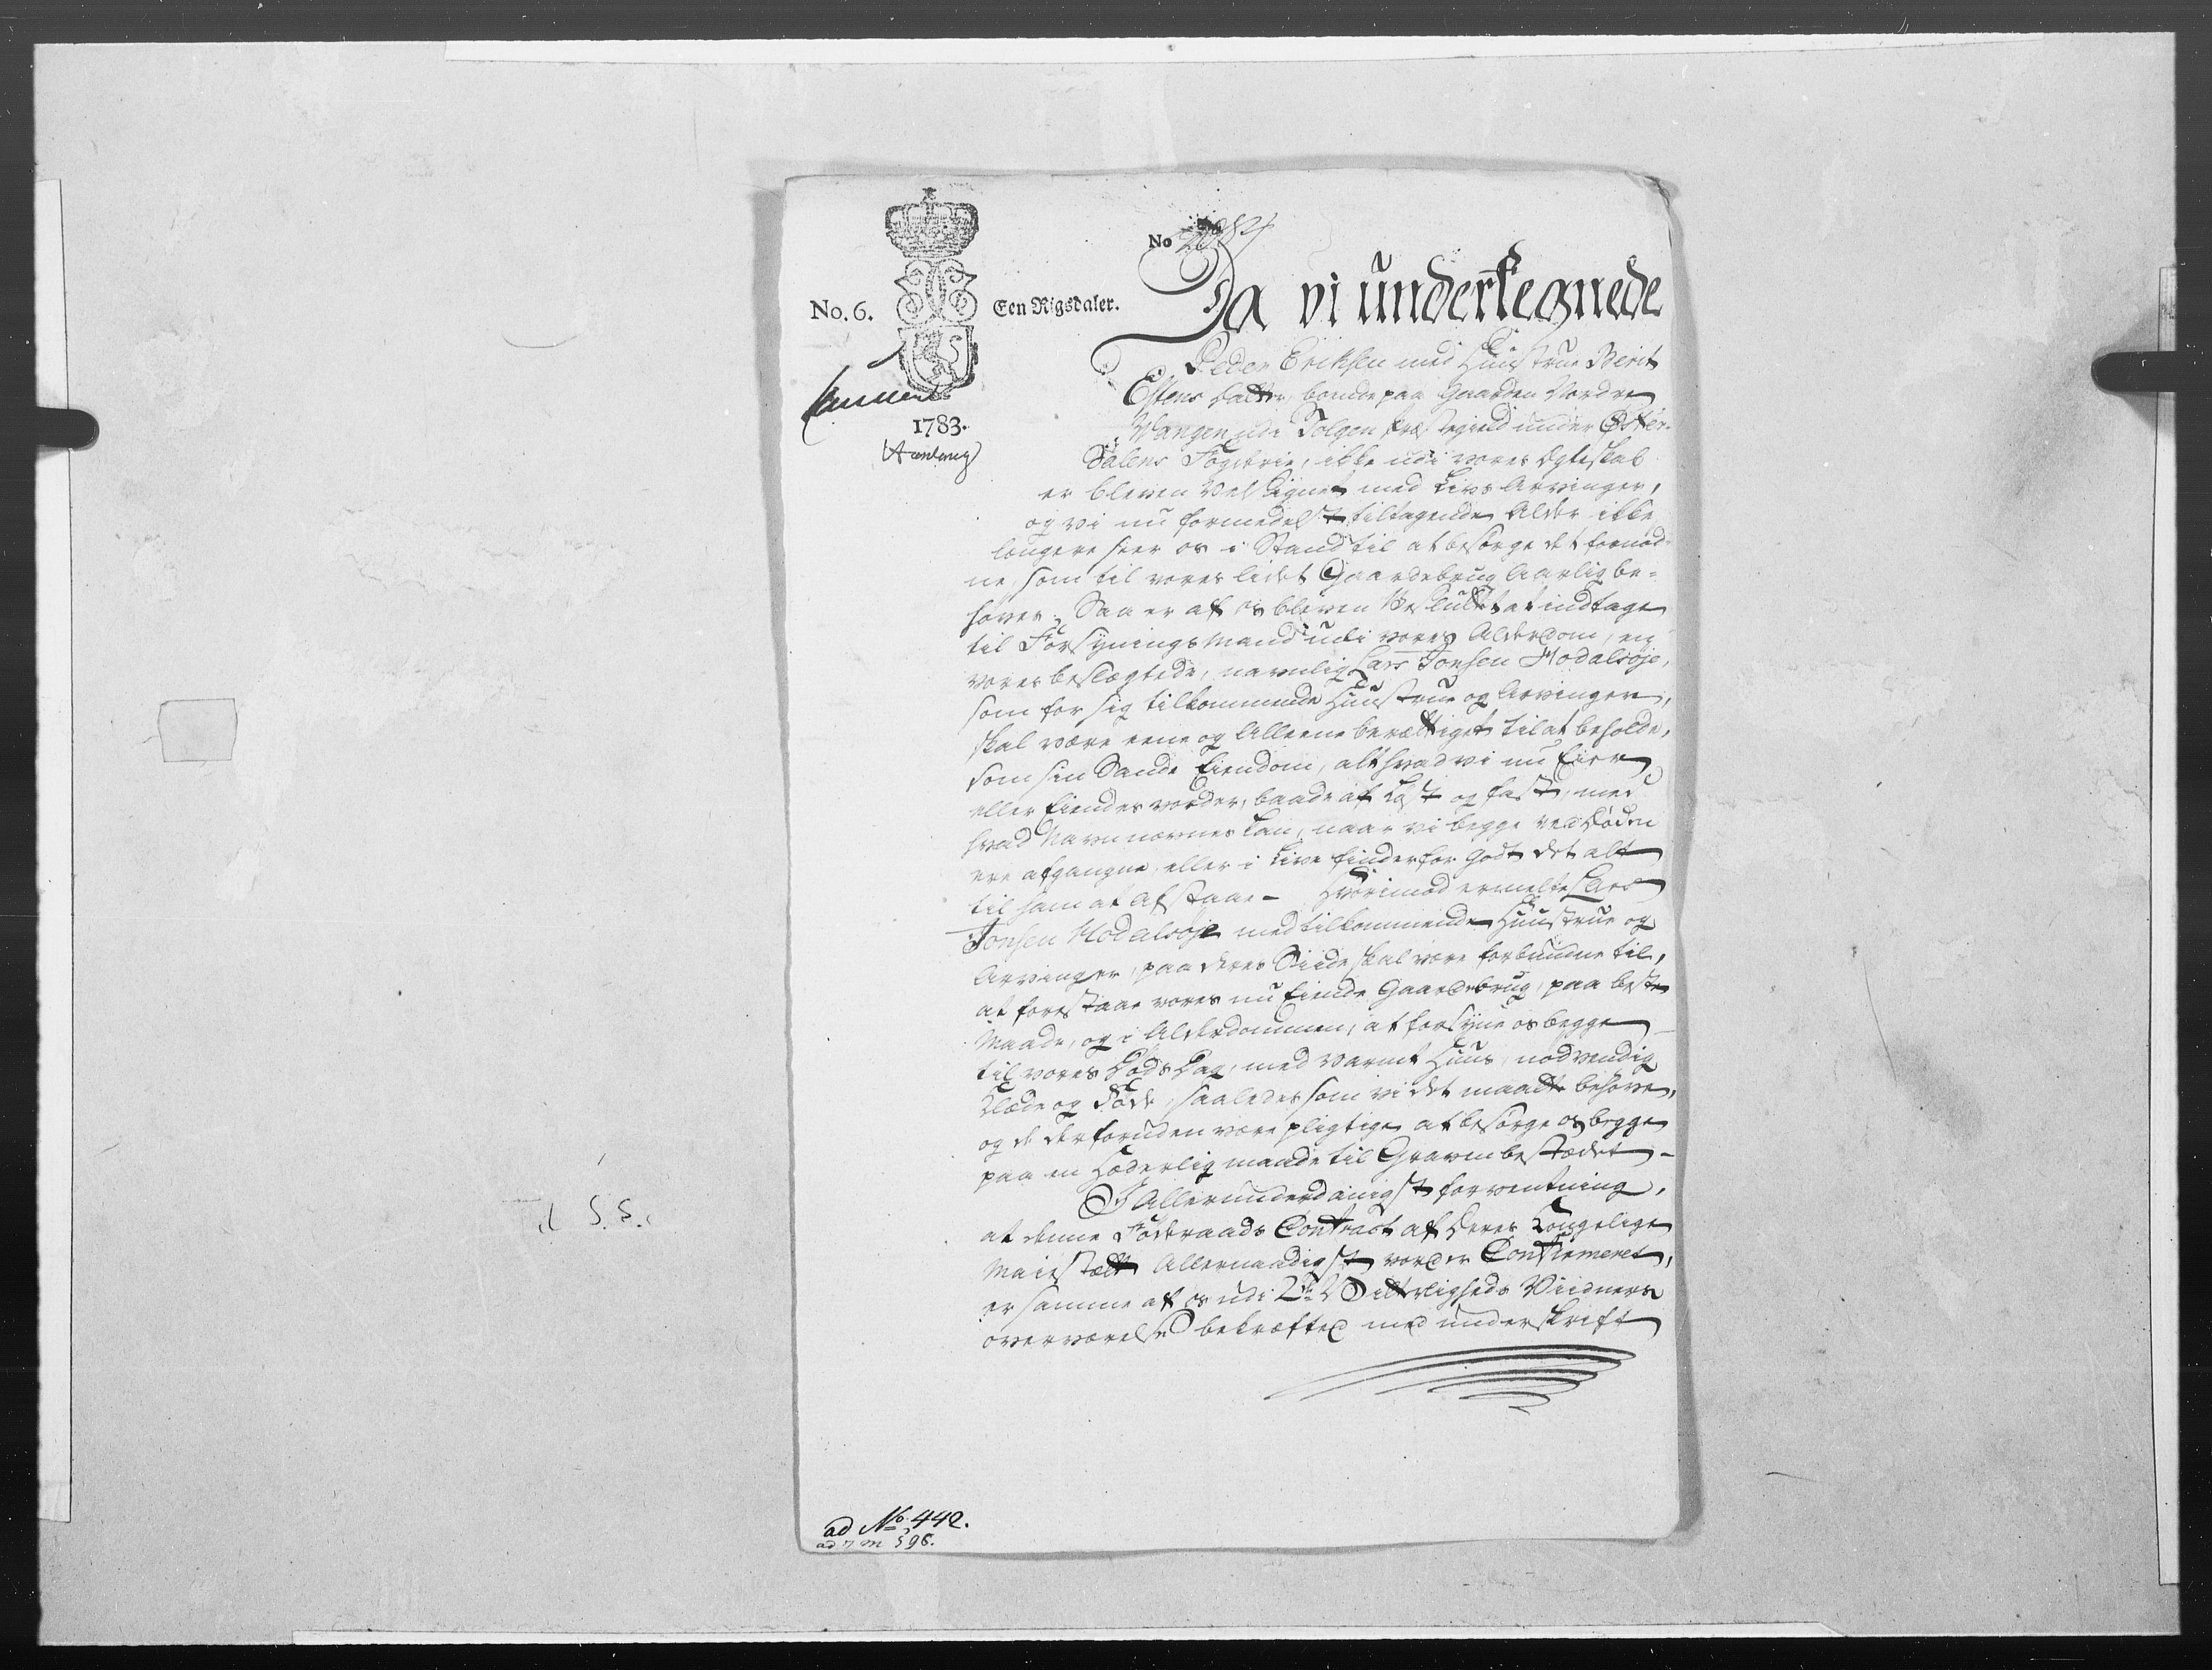 No 2984
No. 6.
Een Rigsdaler.
1783.
Da vi undertegnede
Peder Eriksen med Hustrue Berit
Estens Datter, bonde paa Gaarden Nordre
Vangen udi Tolgen Præstegield under Øster-
dalens Fogderie, ikke udi vores Egteskab
er bleven Velsignet med Livs Arvinger,
og vi nu formedelst tiltagende Alder ikke
længere seer os i Stand til at besørge det fornød-
ne, som til vores lidet Gaardebrug Aarlig be-
høves; Saa er af os bleven Besluttet at indtage
til Forsynings Mand udi vores Alderdom, en
vores beslægtede, navnlig Lars Jonsen Hodalsøje,
som for sig tilkommende Hustrue og Arvinger,
skal være eene og Alleene berættiget til at beholde,
som sin Sande Eiendom, alt hvad vi nu Eier
eller Eiendes vorder, baade af Løst og fast, med
hvad Navn nævnes kan, naar vi begge ved Døden
ere afgangne, eller i Live finder for godt det alt
til ham at Afstaae - Hvorimod ermelte Lars
Jonsen Hodalsøje med tilkommende Hustrue og
Arvinger, paa deres Siide skal være forbundne til,
at forestaae vores nu Eiende Gaardebrug, paa beste
Maade, og i Alderdommen, at forsyne os begge
til vores Døds Dag, med varmt Huus, nødvendig
Klæde og Føde, saaledes som vi det maatte behøve,
og de desforuden være pligtige at besørge os begge
paa en Hæderlig maade til Graven bestædet -
I Allerunderdanigst forventning,
at denne Føderaads Contract af Deres Kongelige
Maiestædt Allernaadigst vorder Confirmeret,
er samme af os udi 2de Vitterligheds Viidners
overværelse bekræftet med underskrift
ad No. 442.
ad 7 m 598.